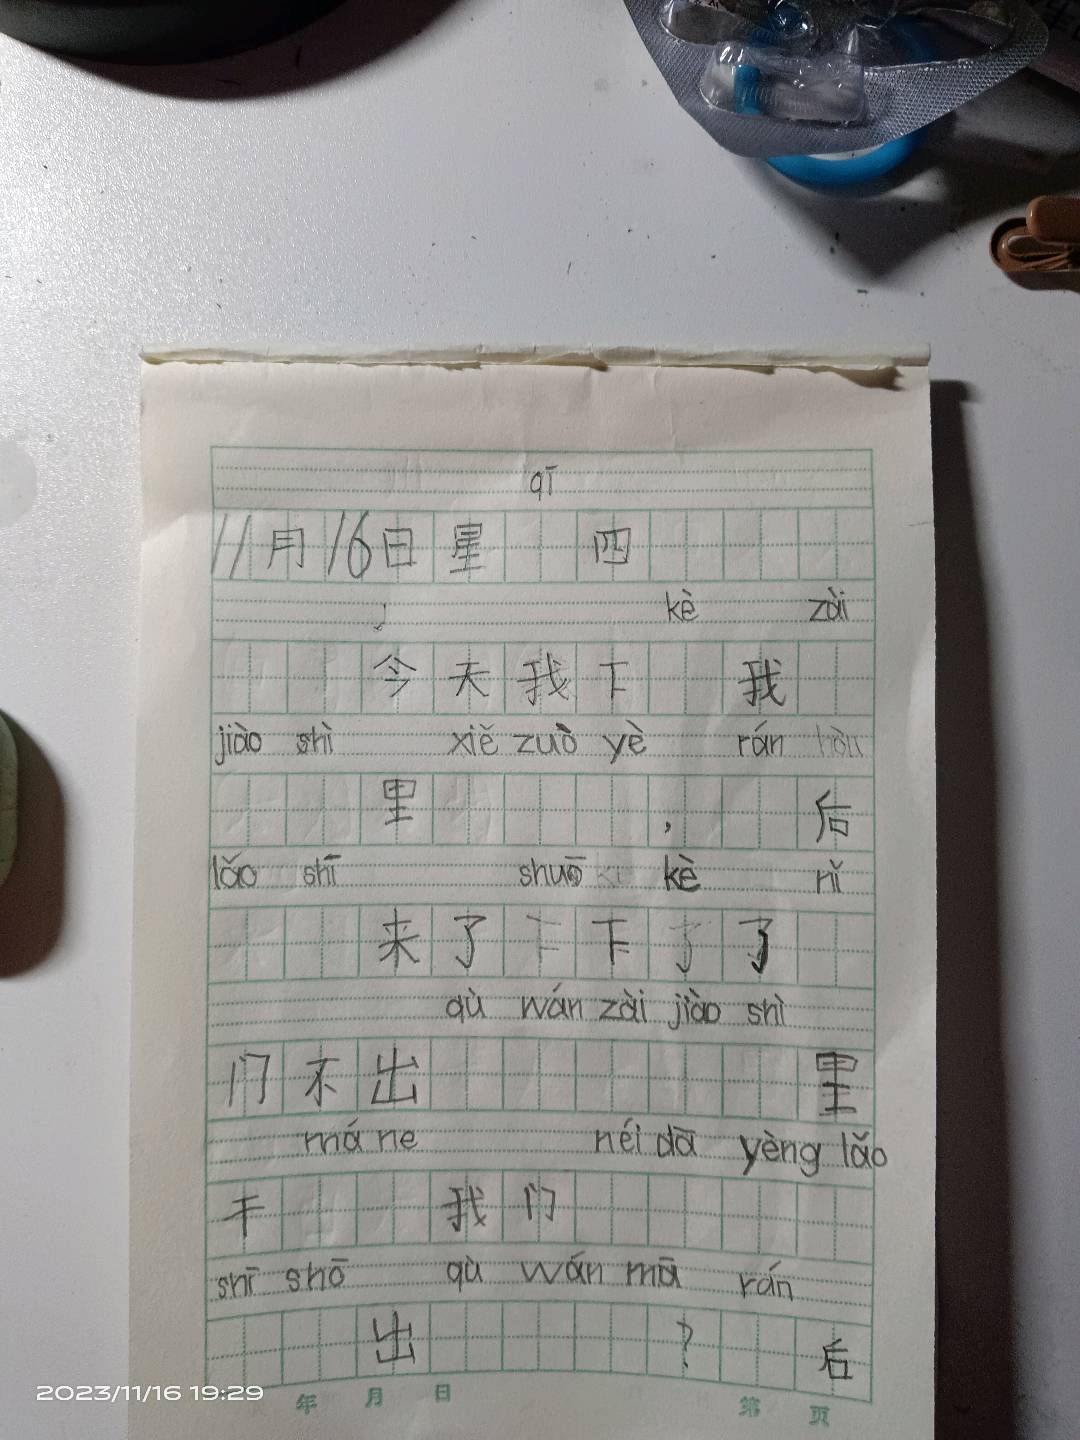 qī
11月16日星 四
kè zài
今天我下 我
jiào shì xiě zuò yè rán
里 , 后
lǎo shī shuō kè nǐ
来了下了
qù wán zài jiào shì
门不出 里
má ne néi dā yèng lǎo
干 我门
shī shō qù wán mā rán
出 ? 后
年 月 日 第 页
2023/11/16 19:29